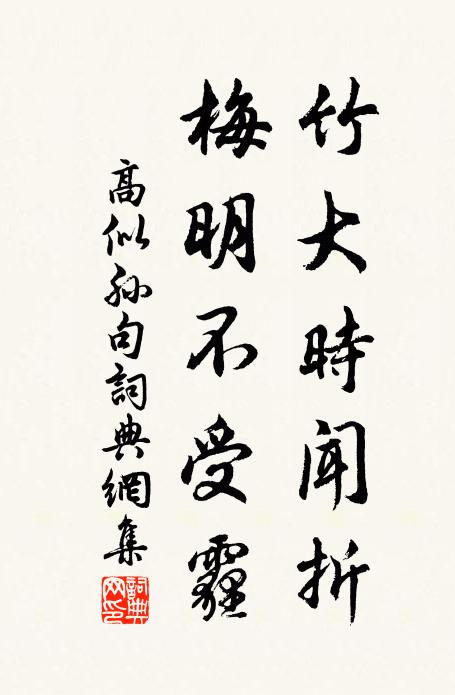 竹大時聞折
梅明不受霾
高似孫句詞典網集
詞典網印